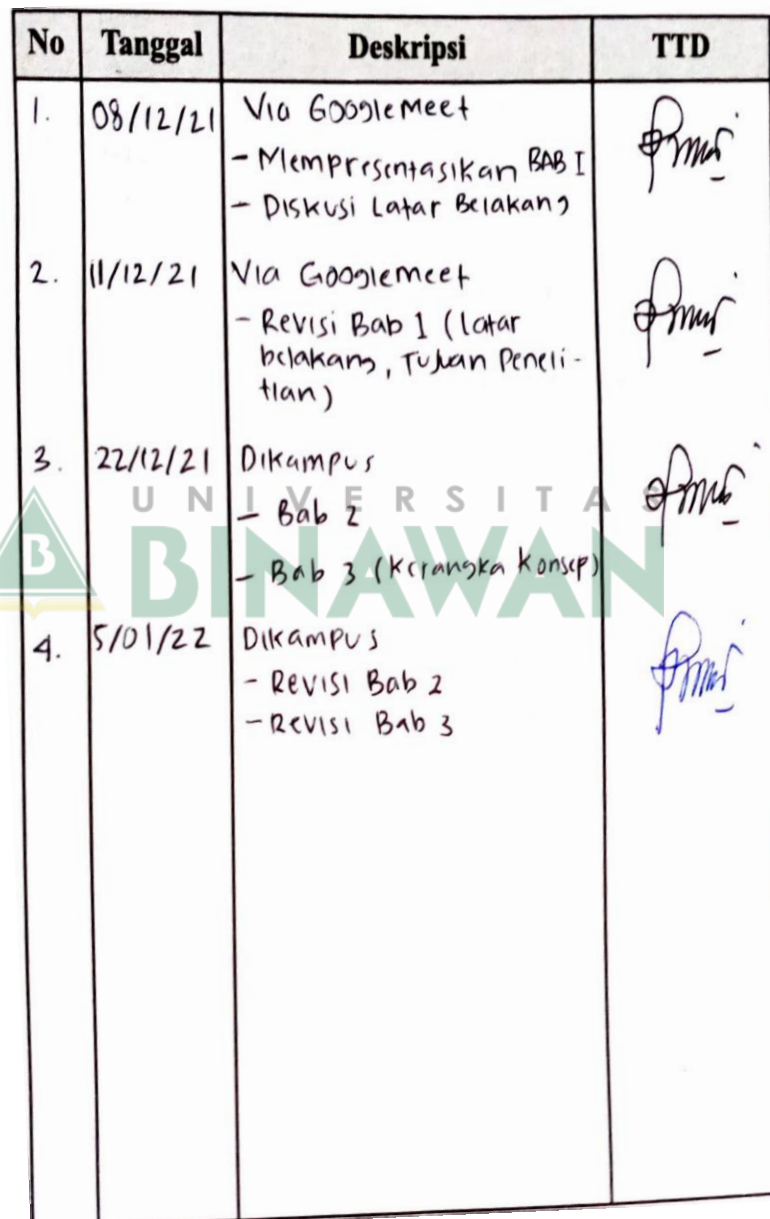 No Tanggal Deskripsi TTD
1. 08/12/21 Via Googlemeet
- Mempresentasikan BAB I
- Diskusi Latar Belakang
2. 11/12/21 Via Googlemeet
- Revisi Bab 1 (latar
belakang, Tujuan Peneli-
tian)
3. 22/12/21 Dikampus
UNIVERSITAS
- Bab 2
B BINAWAN
- Bab 3 (Kerangka Konsep)
4. 5/01/22 Dikampus
- Revisi Bab 2
- Revisi Bab 3